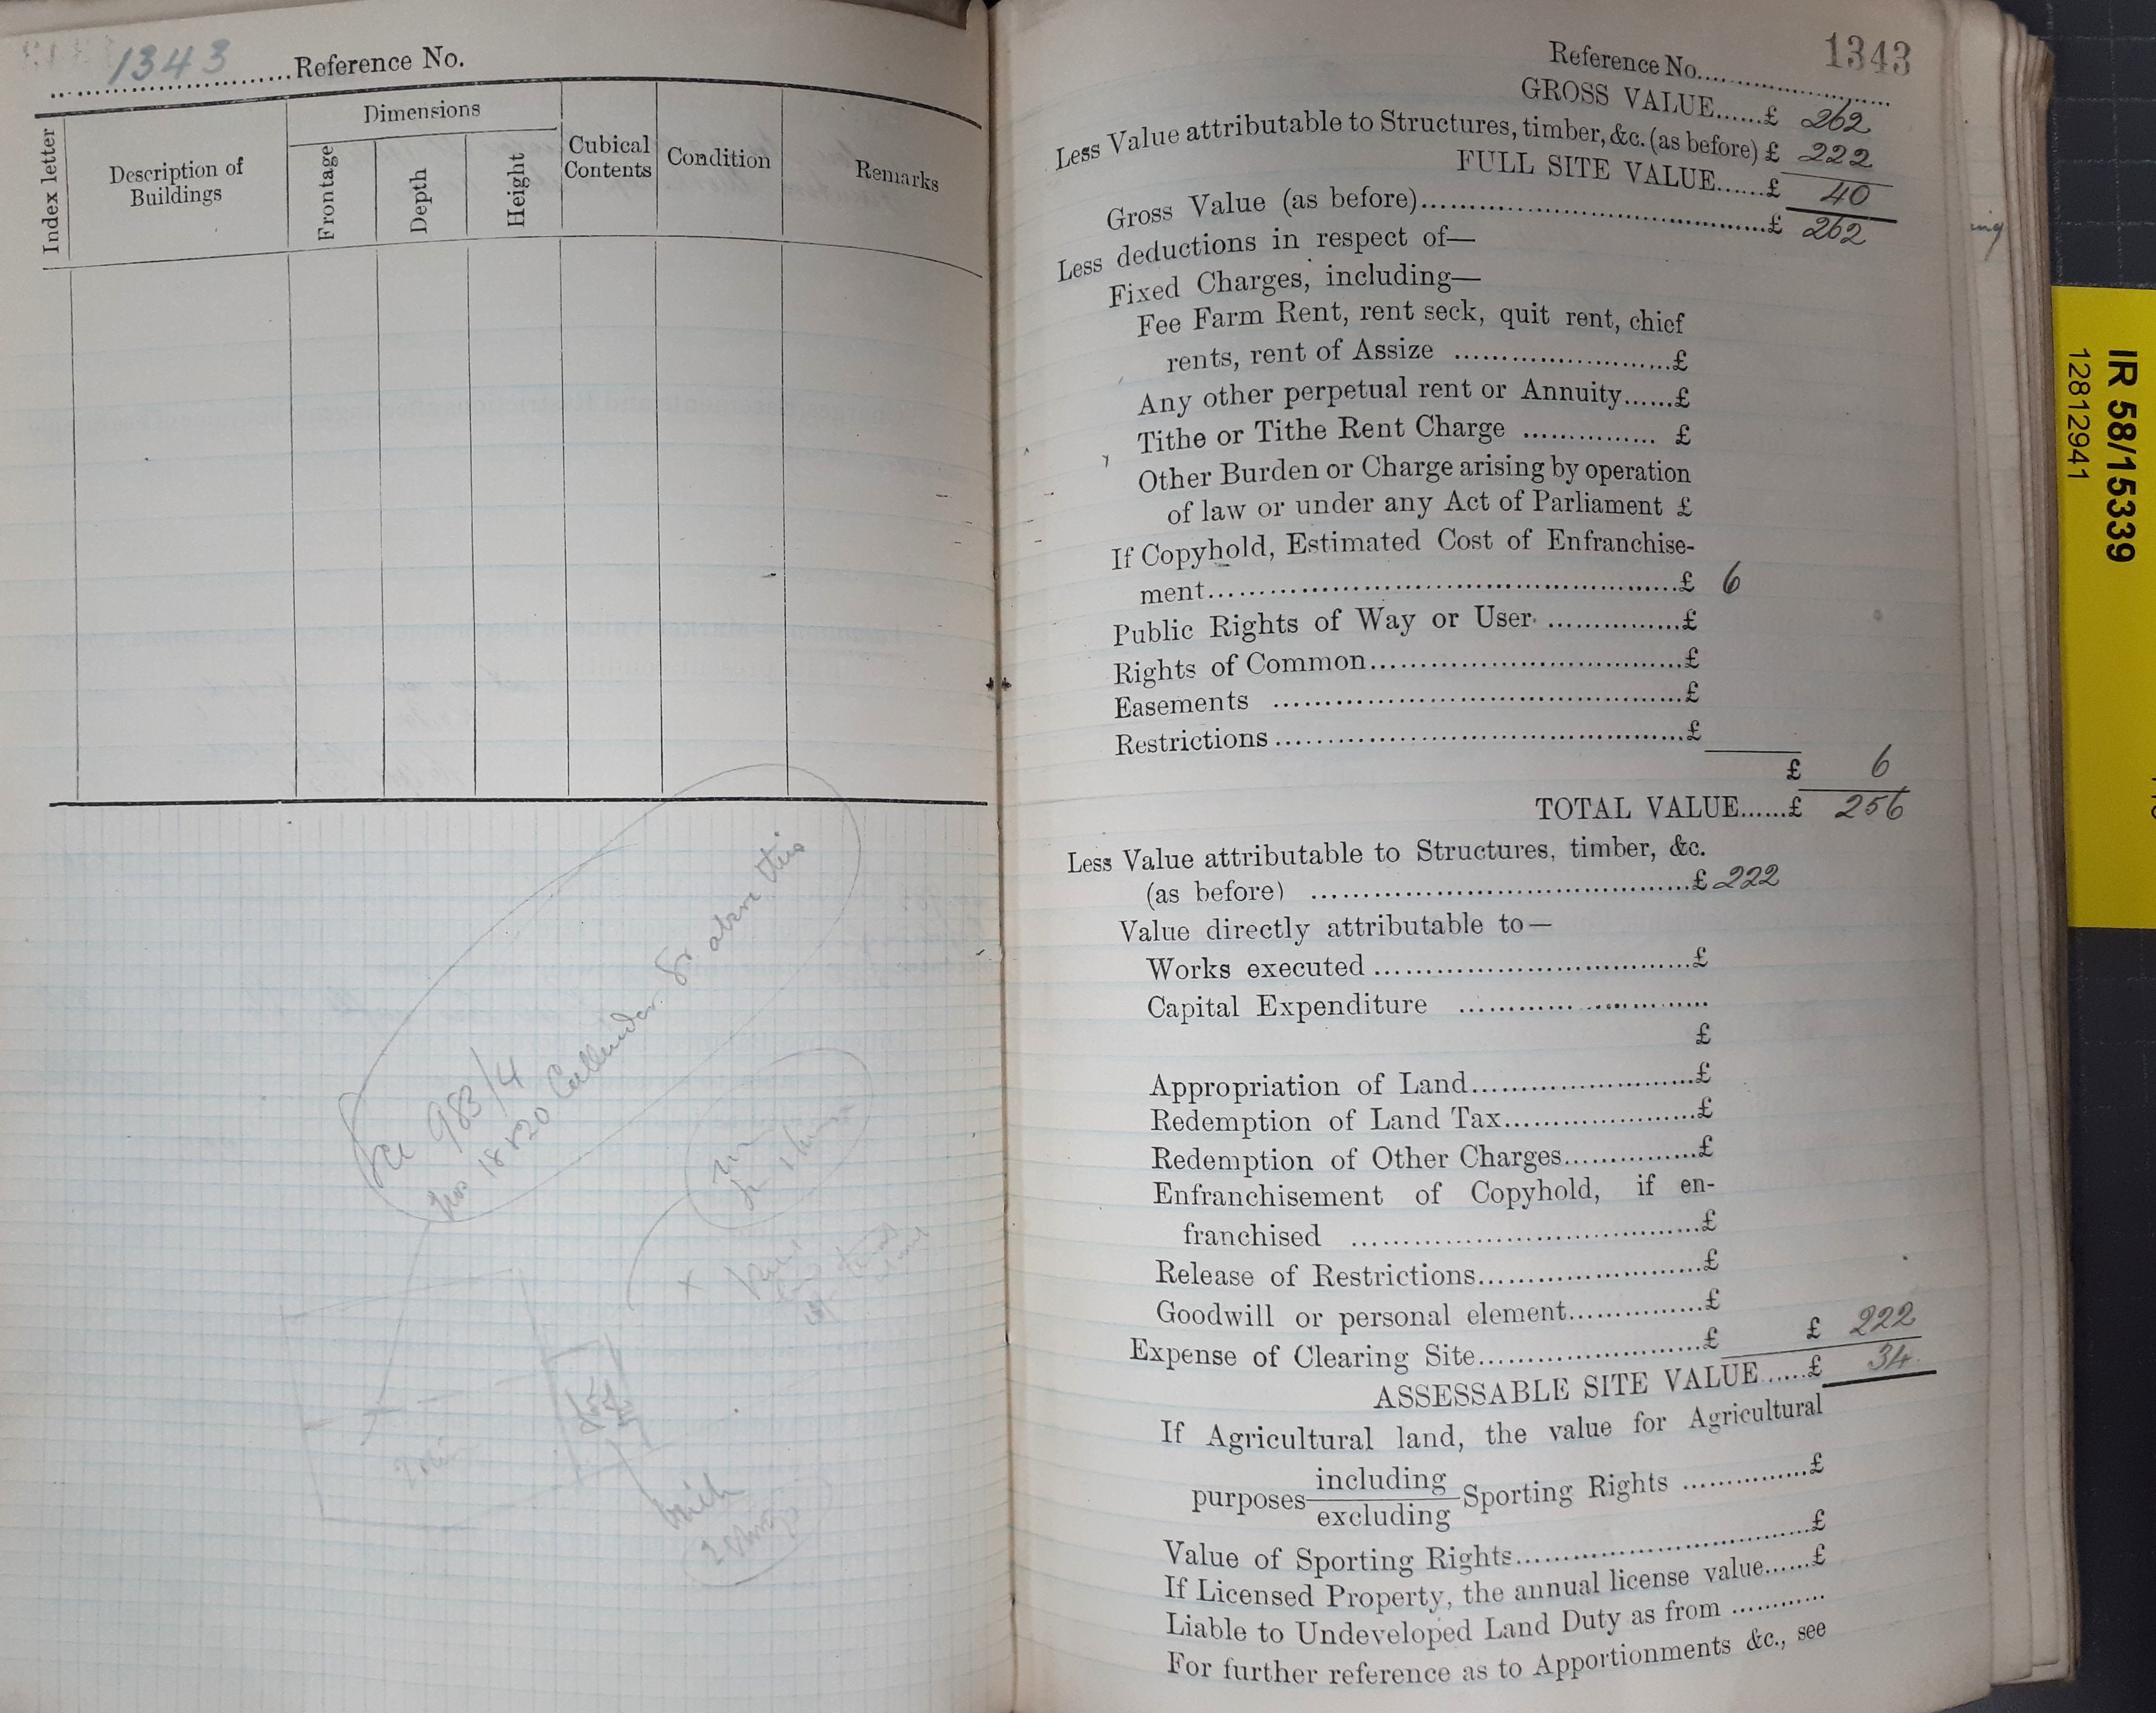 1343 Reference No.
Index letter
Description of Buildings
Dimensions
Frontage
Depth
Height
Cubical Contents
Condition
Remarks
983/4
18 & 20 Callendar St above this
Reference No. 1343
GROSS VALUE......£ 262
Less Value attributable to Structures, timber, &c. (as before) £ 222
FULL SITE VALUE......£ 40
Gross Value (as before)..........£ 262
Less deductions in respect of—
Fixed Charges, including—
Fee Farm Rent, rent seck, quit rent, chief
rents, rent of Assize ..........£
Any other perpetual rent or Annuity......£
Tithe or Tithe Rent Charge ............... £
Other Burden or Charge arising by operation
of law or under any Act of Parliament £
If Copyhold, Estimated Cost of Enfranchise-
ment..........£ 6
Public Rights of Way or User ...............£
Rights of Common..........£
Easements ..........£
Restrictions..........£
£ 6
TOTAL VALUE......£ 256
Less Value attributable to Structures, timber, &c.
(as before) ..........£ 222
Value directly attributable to—
Works executed..........£
Capital Expenditure ..........
£
Appropriation of Land..........£
Redemption of Land Tax..........£
Redemption of Other Charges...............£
Enfranchisement of Copyhold, if en-
franchised ..........£
Release of Restrictions..........£
Goodwill or personal element...............£
Expense of Clearing Site..........£ £ 222
ASSESSABLE SITE VALUE......£ 34
If Agricultural land, the value for Agricultural
purposes including
excluding Sporting Rights ...............£
Value of Sporting Rights..........£
If Licensed Property, the annual license value......£
Liable to Undeveloped Land Duty as from ............
For further reference as to Apportionments &c., see
ing
IR 58/1539
12812941